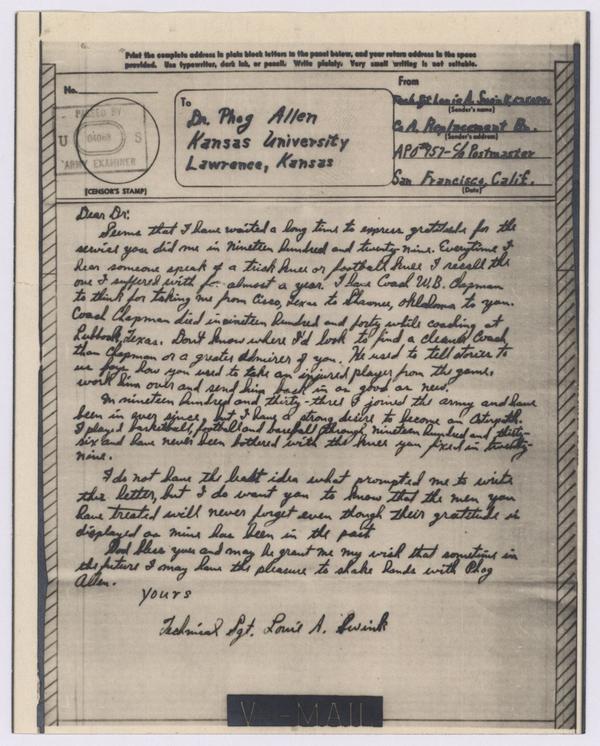 Print the complete address in plain block letters in the panel below, and your return address in the space
provided. Use typewriter, dark ink, or pencil. Write plainly. Very small writing is not suitable.
No.
From
To
PASSED BY
U S
ARMY EXAMINER
[CENSOR'S STAMP]
Dr. Phog Allen
Kansas University
Lawrence, Kansas
Tech. Sgt. Louie A. Swink
(Sender's name)
Co A. Replacement Bn.
(Sender's address)
APO #957-c/o Postmaster
San Francisco, Calif.
(Date)
Dear Dr:
Seems that I have waited a long time to express gratitude for the
service you did me in nineteen hundred and twenty-nine. Everytime I
hear someone speak of a trick knee or football knee I recall the
one I suffered with for almost a year. I have Coach W.B. Chapman
to think for taking me from Cisco, Texas to Shawnee, Oklahoma to you.
Coach Chapman died in nineteen hundred and forty while coaching at
Lubbock, Texas. Don't know where I'd look to find a cleaner Coach
than Chapman or a greater admirer of you. He used to tell stories to
us boys how you used to take an injured player from the game,
work him over and send him back in as good as new.
In nineteen hundred and thirty-three I joined the army and have
been in ever since, but I have a strong desire to become an Osteopath.
I played basketball, football and baseball through nineteen hundred and thirty-
six and have never been bothered with the knee you fixed in twenty-
nine.
I do not have the least idea what prompted me to write
this letter, but I do want you to know that the men you
have treated will never forget even though their gratitude is
displayed as mine has been in the past
God bless you and may he grant me my wish that sometime in
the future I may have the pleasure to shake hands with Phog
Allen.
Yours
Technical Sgt. Louie A. Swink
V-MAIL